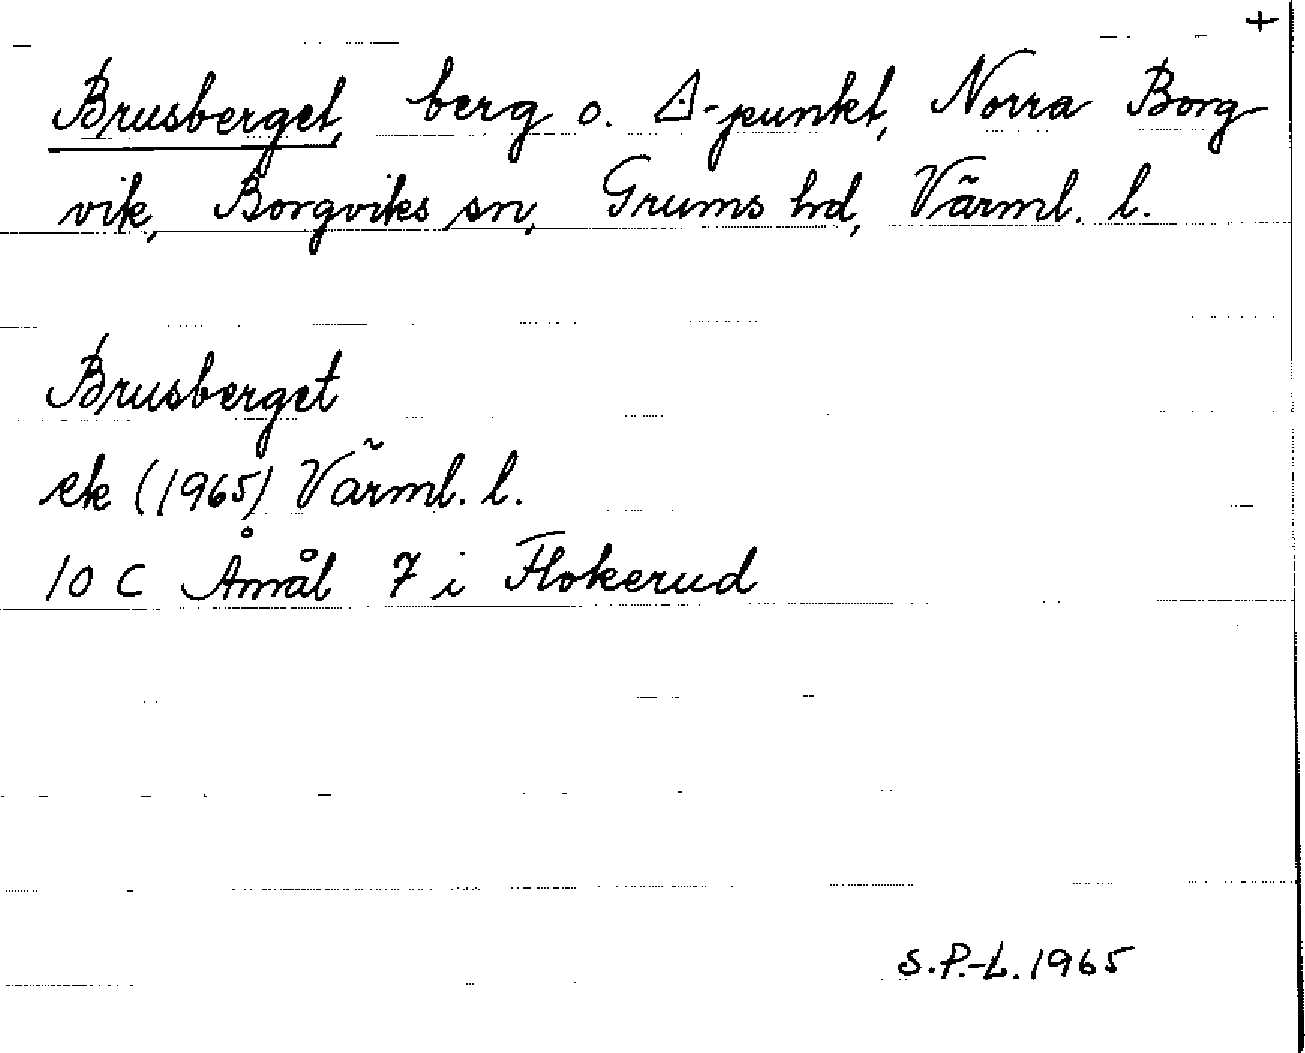 +
Brusberget, berg o. △-punkt, Norra Borg
vik, Borgviks sn, Grums hd, Värml. l.
Brusberget
ek (1965) Värml. l.
10 C Åmål 7 i Flokerud
S.P.-L. 1965